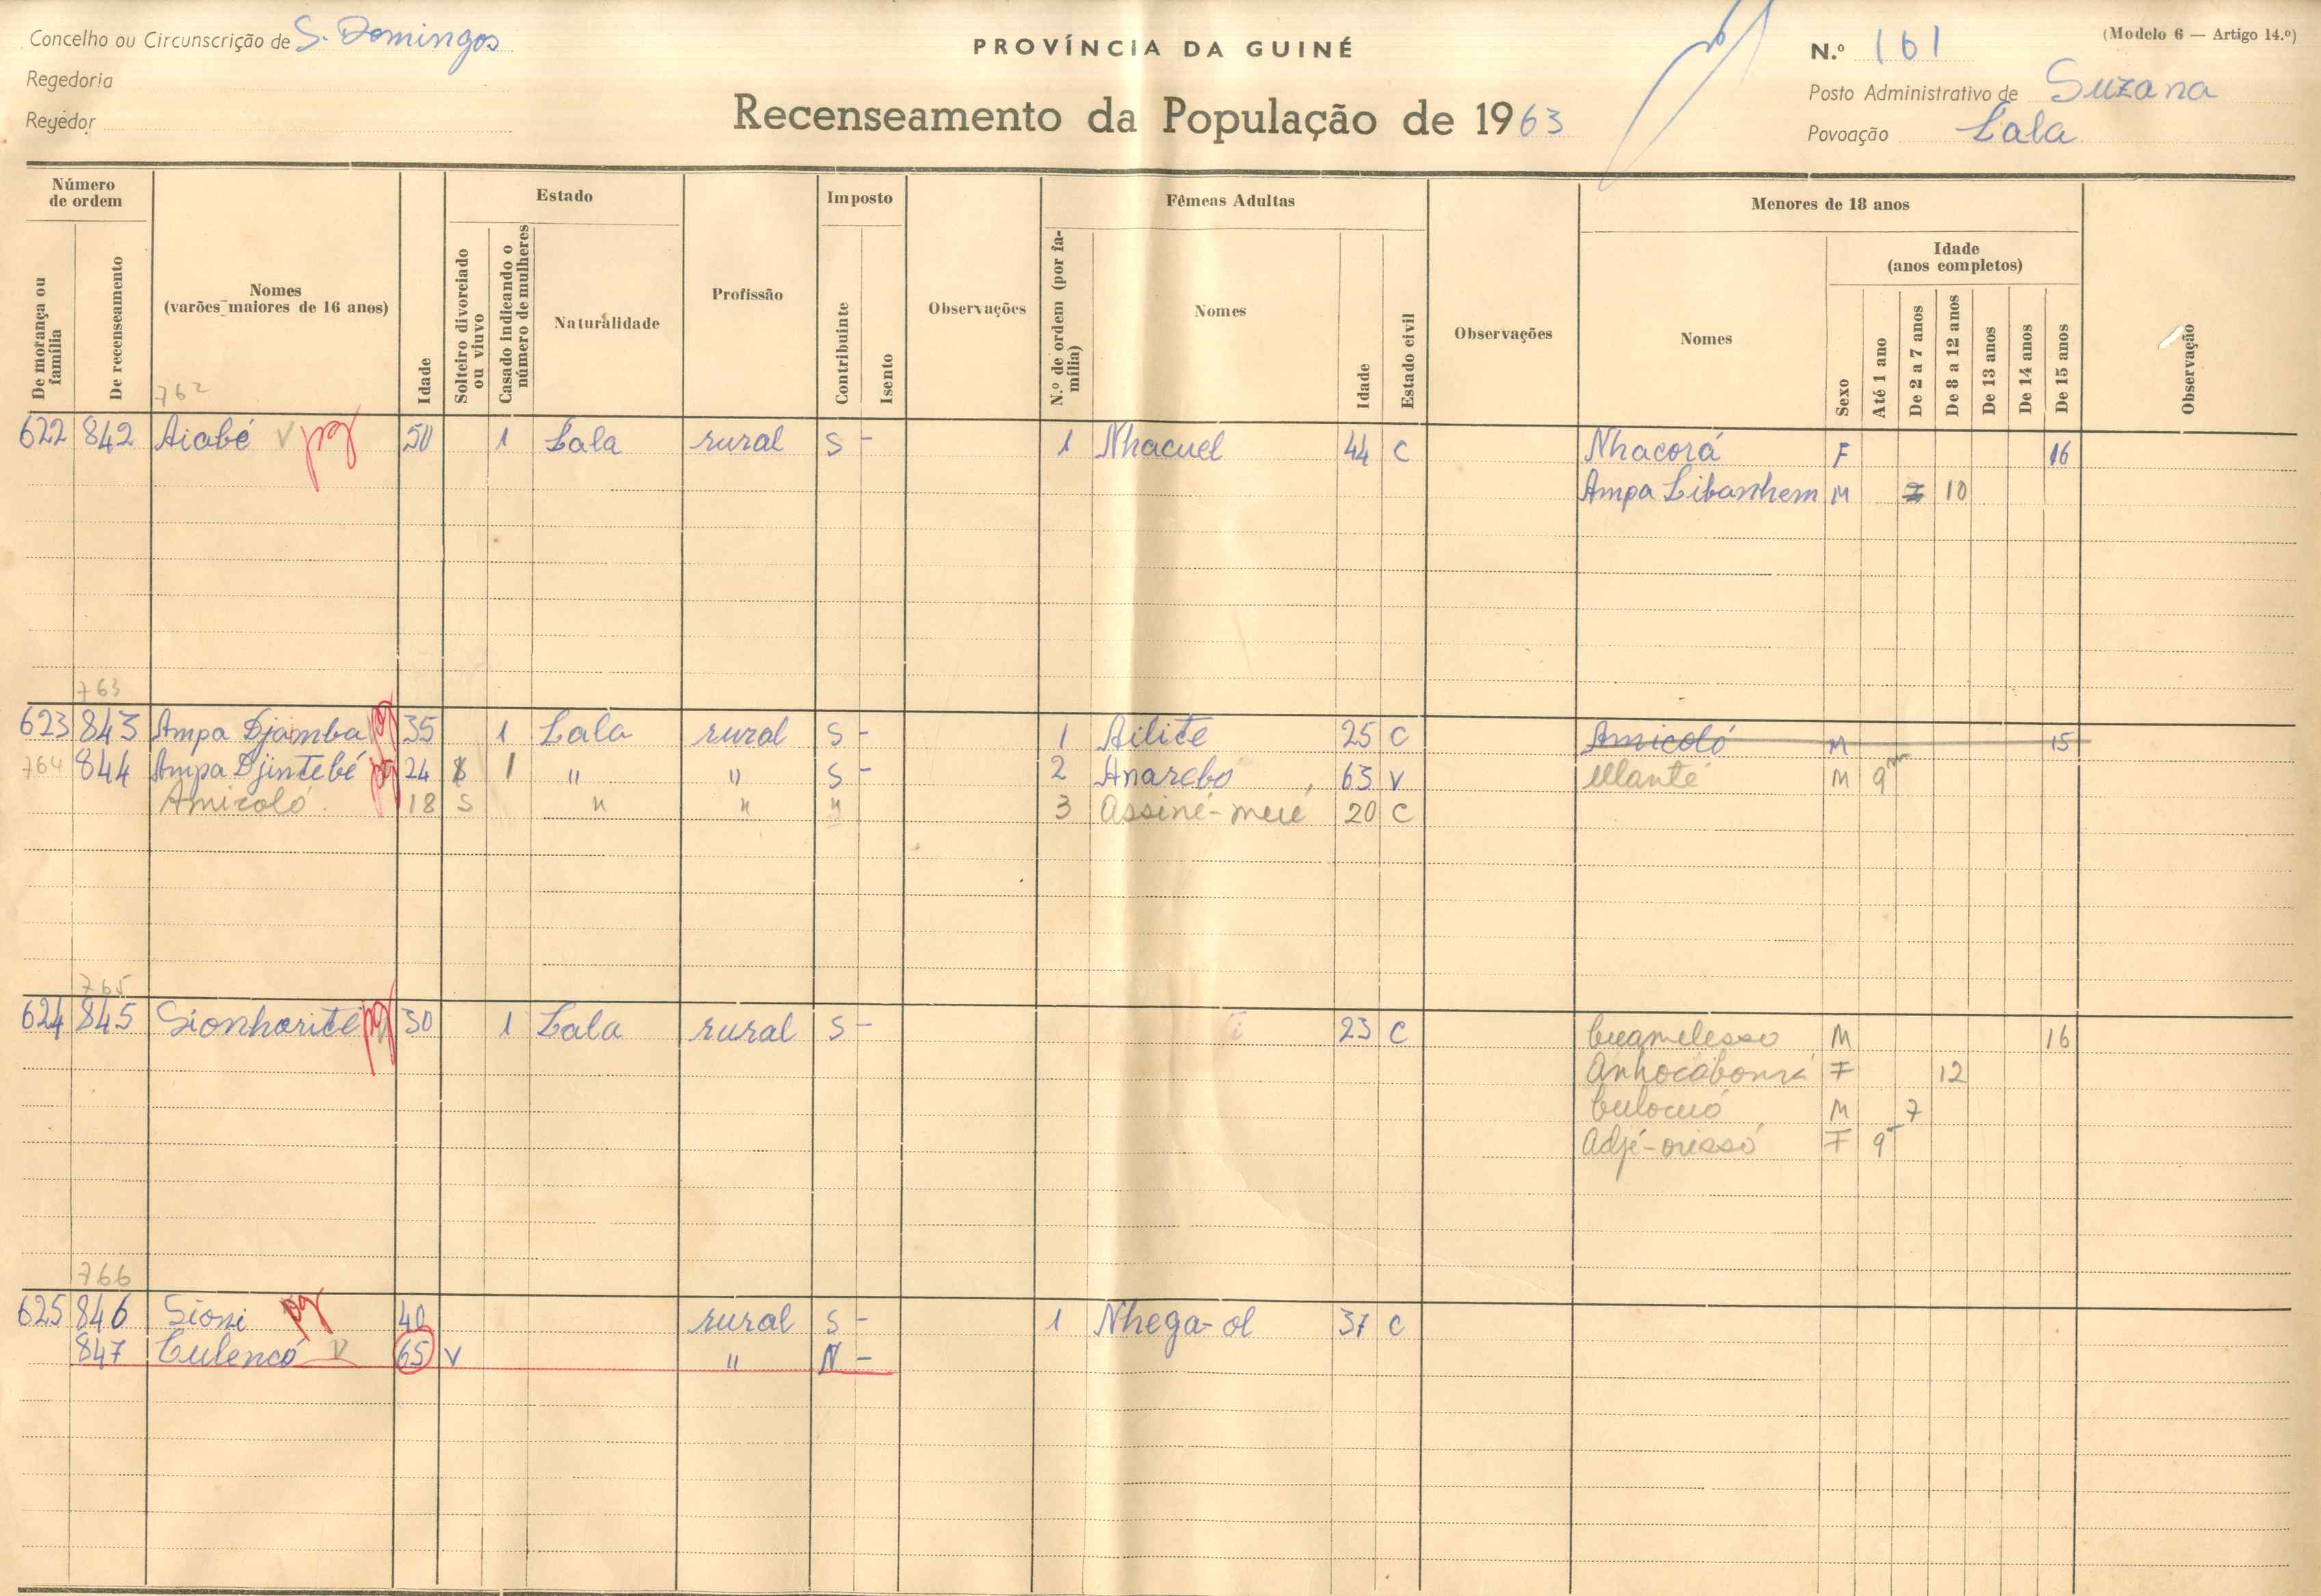 Concelho ou Circunscrição de S. Domingos
Regedoria
Regedor
PROVÍNCIA DA GUINÉ
Recenseamento da População de 1963
(Modelo 6 — Artigo 14.º)
N.º 161
Posto Administrativo de Suzana
Povoação Lala
Número de ordem
De morança ou família
De recenseamento
Nomes
(varões maiores de 16 anos)
Idade
Estado
Solteiro divorciado ou viuvo
Casado indicando o número de mulheres
Naturalidade
Profissão
Imposto
Contribuinte
Isento
Observações
Fêmeas Adultas
N.º de ordem (por família)
Nomes
Idade
Estado civil
Observações
Menores de 18 anos
Nomes
Sexo
Idade
(anos completos)
Até 1 ano
De 2 a 7 anos
De 8 a 12 anos
De 13 anos
De 14 anos
De 15 anos
Observação
762
622 842 Aiabé V pg 50 1 Lala rural S - 1 Nhacuel 44 C Nhacorá F 16
Ampa Libanhem M 7 10
763
623 843 Ampa Djamba pg 35 1 Lala rural S - 1 Ailite 25 C Amicoló M 15
764 844 Ampa Djintebé pg 24 S 1 " " S - 2 Anarebo 63 V Ulanté M 9m
Amicoló 18 S " " " 3 Assiné-meié 20 C
765
624 845 Sionhorité pg 30 1 Lala rural S - 23 C M 16
F 12
M 7
F 9
766
625 846 Sioni pg 40 rural S - 1 Nhega-ol 37 C
847 Culencó V 65 V " N -